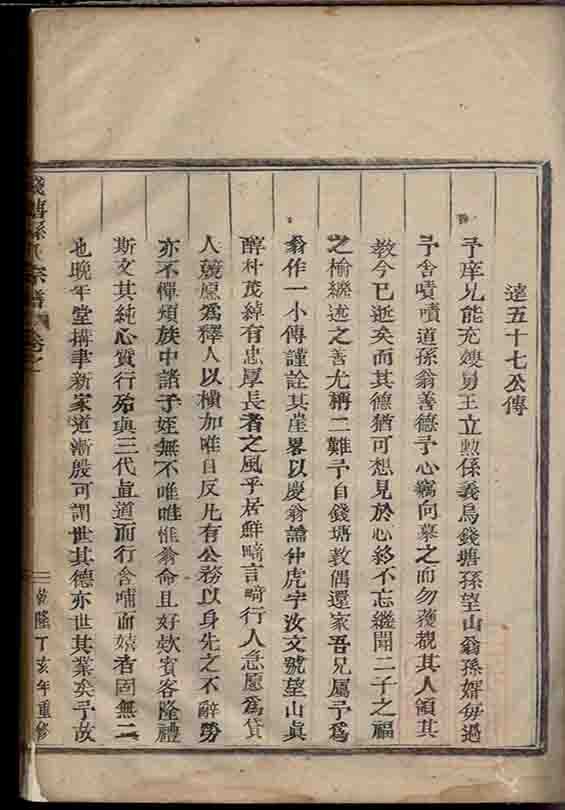 達五十七公傳
予庠兄能充嫂舅王立勳係義烏錢塘孫望山翁孫婿每過
予舍嘖嘖道孫翁善德予心竊向慕之而勿獲覩其人領其
教今已逝矣而其德猶可想見於心終不忘繼聞二子之福
之榆繼述之善尤稱二難予自錢塘教偶還家吾兄屬予爲
翁作一小傳謹詮其崖畧以慶翁諱仲虎字汝文號望山眞
醇朴茂綽有忠厚長者之風平居鮮畸言畸行人急愿爲貸
人競愿爲釋人以橫加唯自反凡有公務以身先之不辭勞
亦不憚煩族中諸子姪無不唯唯惟翁命且好欵賓客隆禮
斯文其純心質行殆與三代直道而行含哺而嬉者固無二
也晚年堂搆聿新家道漸殷可謂世其德亦世其業矣予故
錢塘孫氏宗譜 卷之 乾隆丁亥年重修